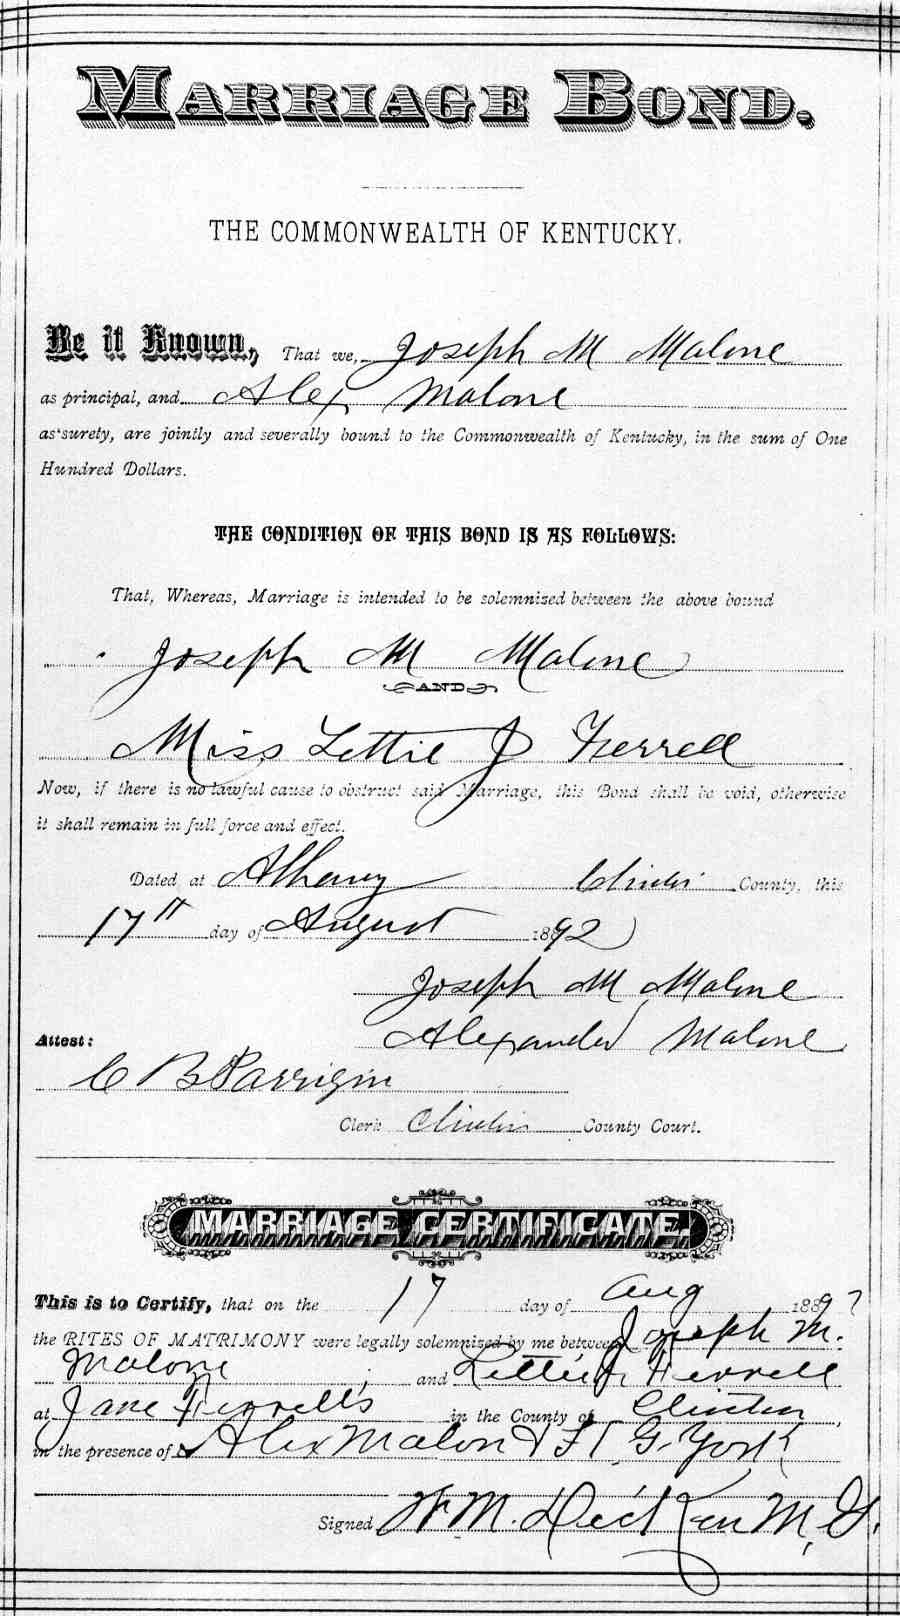 MARRIAGE BOND.
THE COMMONWEALTH OF KENTUCKY.
Be it Known, That we, Joseph M Malone
as principal, and Alex Malone
as surety, are jointly and severally bound to the Commonwealth of Kentucky, in the sum of One
Hundred Dollars.
THE CONDITION OF THIS BOND IS AS FOLLOWS:
That, Whereas, Marriage is intended to be solemnized between the above bound
Joseph M Malone
AND
Miss Lettie J Ferrell
Now, if there is no lawful cause to obstruct said Marriage, this Bond shall be void, otherwise
it shall remain in full force and effect.
Dated at Albany Clinton County, this
17th day of August 1892
Joseph M Malone
Alexander Malone
Attest:
C B Parrigin
Clerk Clinton County Court.
MARRIAGE CERTIFICATE.
This is to Certify, that on the 17 day of Aug 189
the RITES OF MATRIMONY were legally solemnized by me between Joseph M.
Malone and Lettie J. Ferrell
at Jane Ferrell's in the County of Clinton
in the presence of Alex Malon & G. York
Signed W. M. M. G.